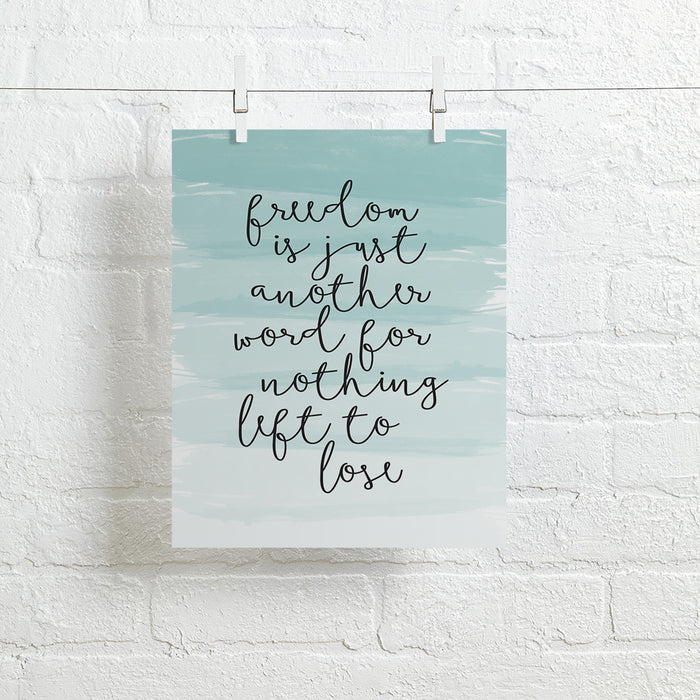 freedom
is just
another
word for
nothing
left to
lose